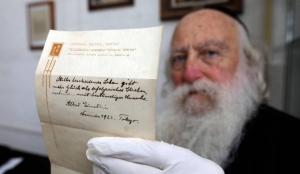 IMPERIAL HOTEL, TOKYO
Stilles bescheidenes Leben gibt
mehr Glück als erfolgreiches Streben,
mit beständiger Unruhe.
Albert Einstein
November 1922. Tokyo